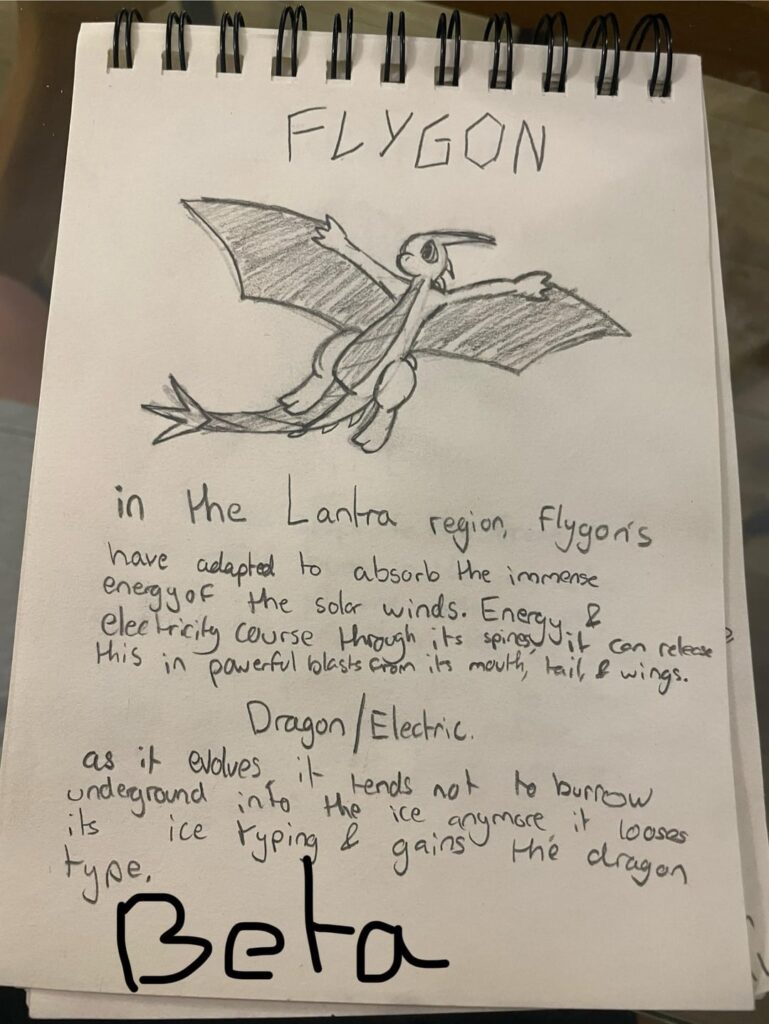 FLYGON
in the Lantra region, Flygon's
have adapted to absorb the immense
energy of the solar winds. Energy &
electricity course through its spines, it can release
this in powerful blasts from its mouth, tail, & wings.
Dragon/Electric.
as it evolves, it tends not to burrow
underground into the ice anymore, it looses
its ice typing & gains the dragon
type.
Beta